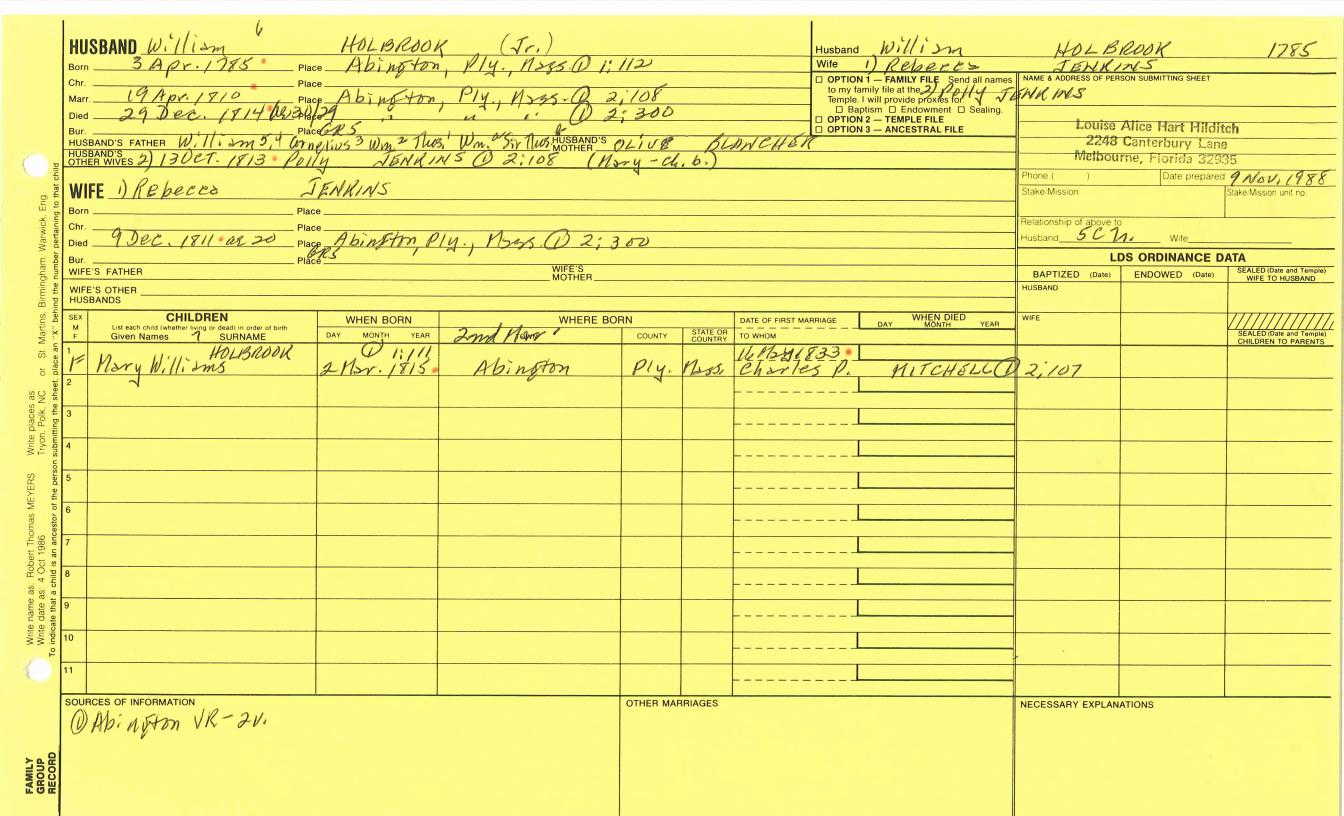 6
HUSBAND William HOLBROOK (Jr.)
Born 3 Apr. 1785 Place Abington, Ply., Mass ① 1:112
Chr. Place
Marr. 19 Apr. 1810 Place Abington, Ply., Mass. ① 2:108
Died 29 Dec. 1814 Place " " " ① 2:300
Bur. Place GRS
HUSBAND'S FATHER William 5, 4 Cornelius 3 Wm. 2 Thos. 1 Wm. a Sir Thos. HUSBAND'S MOTHER OLIVE BLANCHER
HUSBAND'S OTHER WIVES 2) 13 OCT. 1813 Polly JENKINS ① 2:108 (Mary - ch. b.)
WIFE 1) Rebecca JENKINS
Born Place
Chr. Place
Died 9 Dec. 1811 ae 20 Place Abington, Ply., Mass ① 2:300
Bur. Place GRS
WIFE'S FATHER WIFE'S MOTHER
WIFE'S OTHER HUSBANDS
Husband William HOLBROOK 1785
Wife 1) Rebecca JENKINS
2) Polly JENKINS
☐ OPTION 1 — FAMILY FILE Send all names
to my family file at the
Temple. I will provide proxies for
☐ Baptism ☐ Endowment ☐ Sealing.
☐ OPTION 2 — TEMPLE FILE
☐ OPTION 3 — ANCESTRAL FILE
NAME & ADDRESS OF PERSON SUBMITTING SHEET
Louise Alice Hart Hilditch
2248 Canterbury Lane
Melbourne, Florida 32935
Phone ( ) Date prepared 9 Nov. 1988
Stake/Mission Stake/Mission unit no.
Relationship of above to
Husband 5C Wife
LDS ORDINANCE DATA
BAPTIZED (Date) ENDOWED (Date) SEALED (Date and Temple) WIFE TO HUSBAND
HUSBAND
WIFE
SEALED (Date and Temple) CHILDREN TO PARENTS
SEX M F
CHILDREN
List each child (whether living or dead) in order of birth
Given Names 7 SURNAME
WHEN BORN
DAY MONTH YEAR
WHERE BORN
2nd Marr. COUNTY STATE OR COUNTRY
DATE OF FIRST MARRIAGE
TO WHOM
WHEN DIED
DAY MONTH YEAR
1 HOLBROOK ① 1:111 16 May 1833
F Mary Williams 2 Mar. 1815 Abington Ply. Mass. Charles P. MITCHELL ① 2:107
2
3
4
5
6
7
8
9
10
11
SOURCES OF INFORMATION
① Abington VR - 2v.
OTHER MARRIAGES
NECESSARY EXPLANATIONS
FAMILY GROUP RECORD
Write name as: Robert Thomas MEYERS Write places as: Tryon, Polk, NC or St. Martins, Birmingham, Warwick, Eng.
Write date as: 4 Oct 1986
To indicate that a child is an ancestor of the person submitting the sheet, place an "X" behind the number pertaining to that child